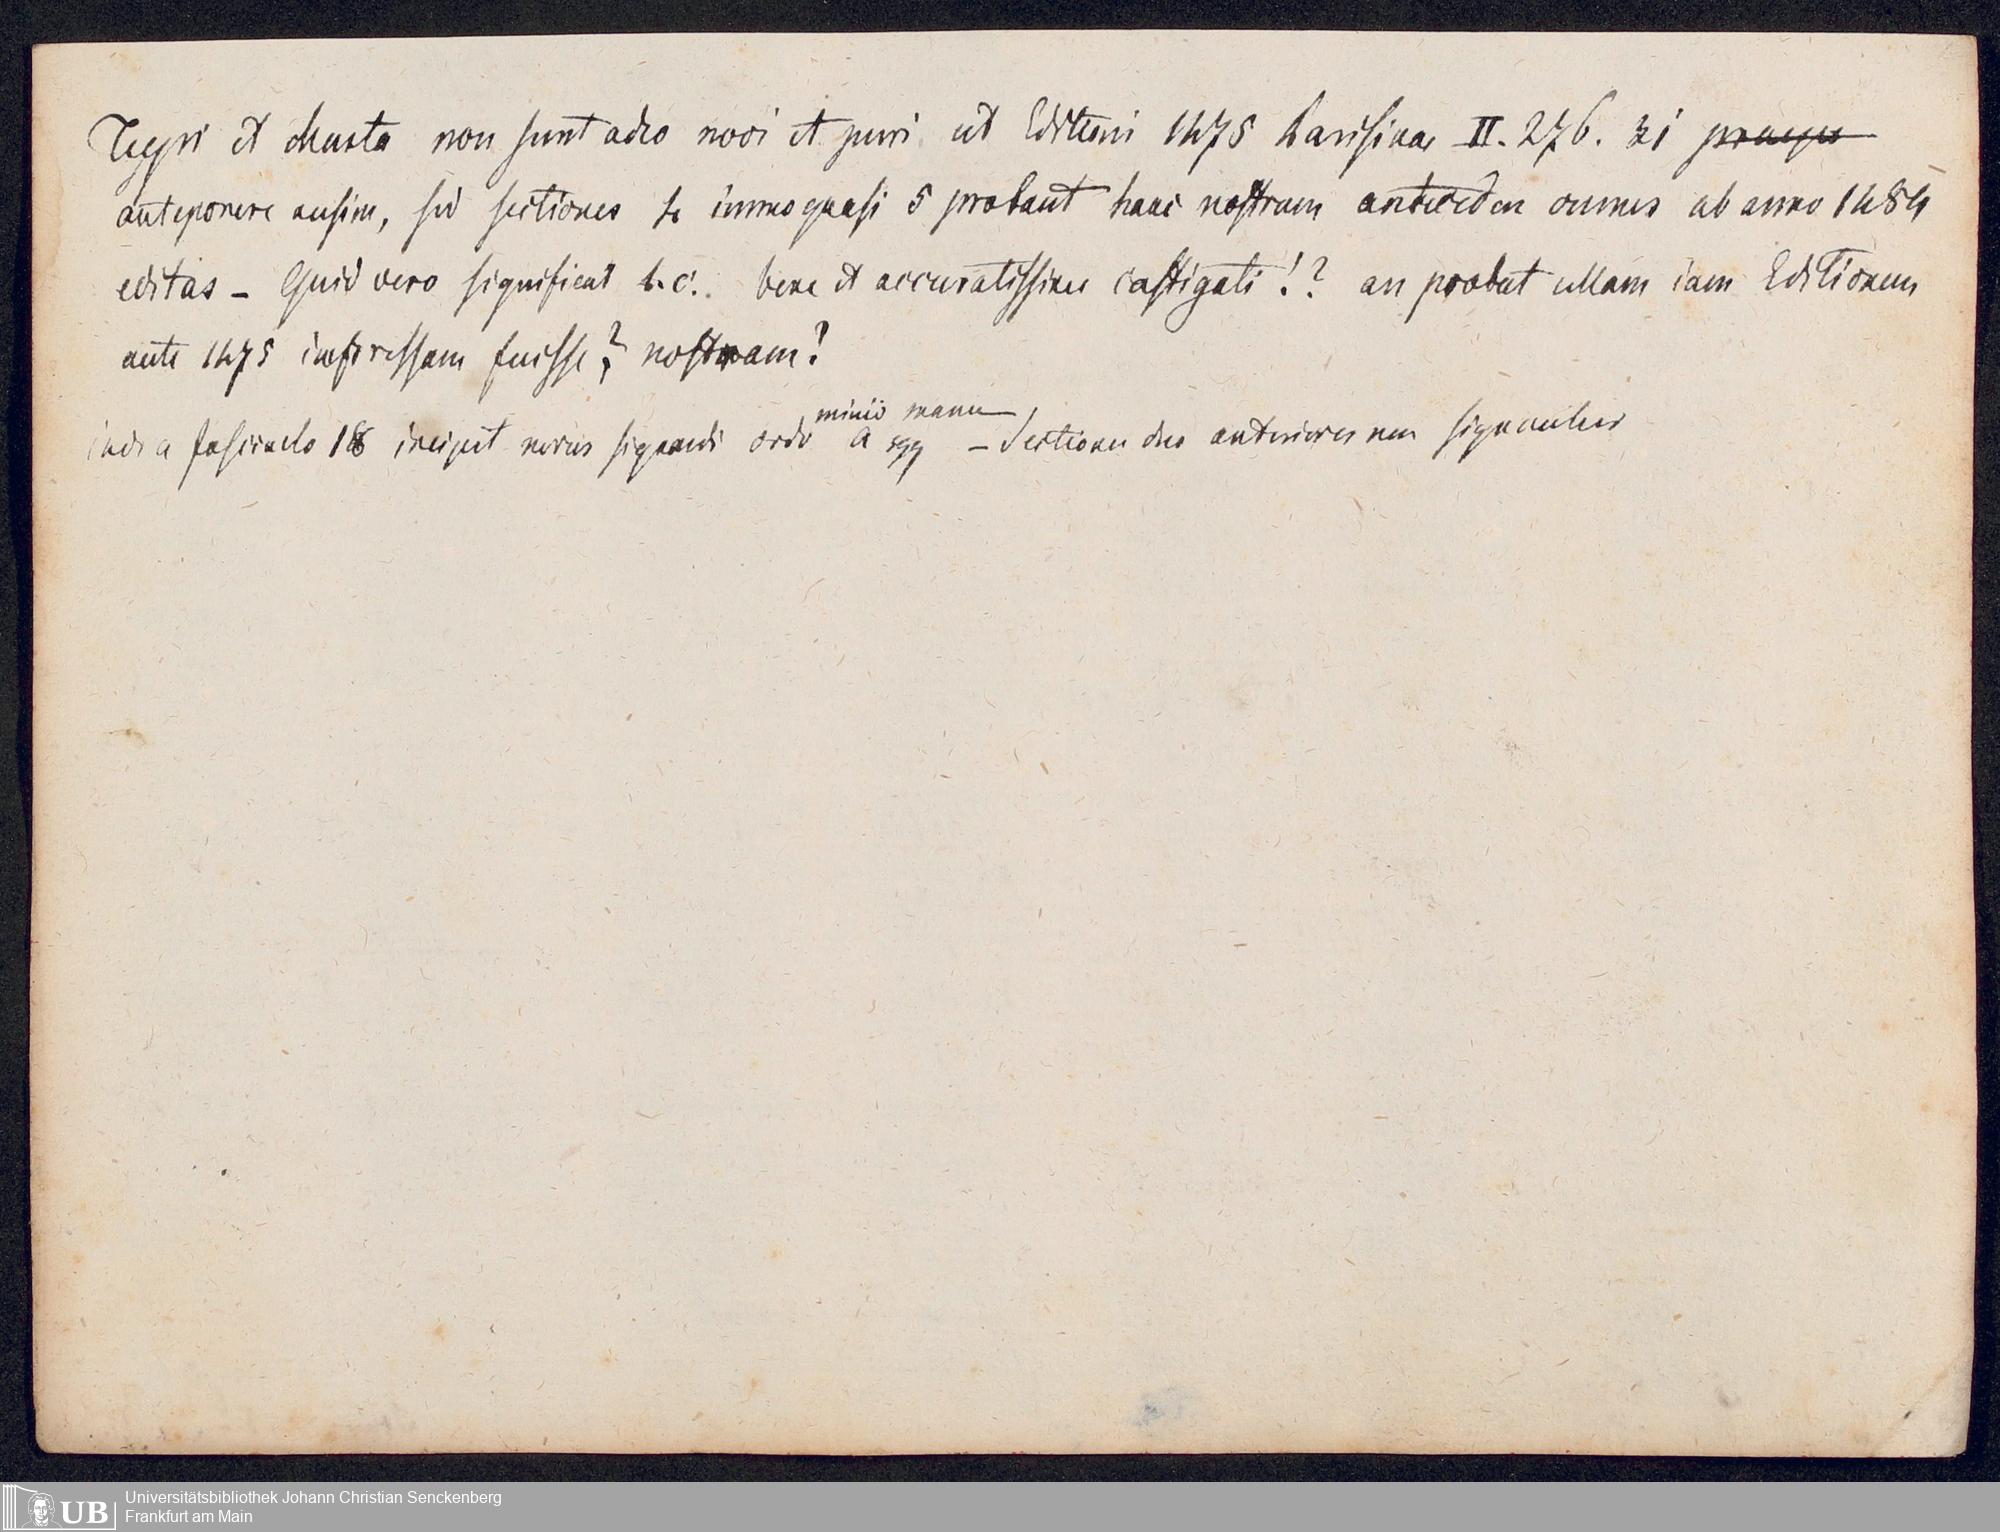 Typi et charta non sunt adeo novi et puri ut Editioni 1475 Parisinae II. 276. ei praepo
anteponere ausim, sed sectiones 4 immo quasi 5 probant hanc nostram antecedere omnes ab anno 1484
editas – Quid vero significat h. c. bene et accuratissime castigati!? an probat ullam iam Editionem
ante 1475 impressam fuisse? nostram?
inde a fasciculo 18 incipit novus signandi ordo minio manu a sqq – Sectiones duo anteriores non
Universitätsbibliothek Johann Christian Senckenberg
Frankfurt am Main
UB